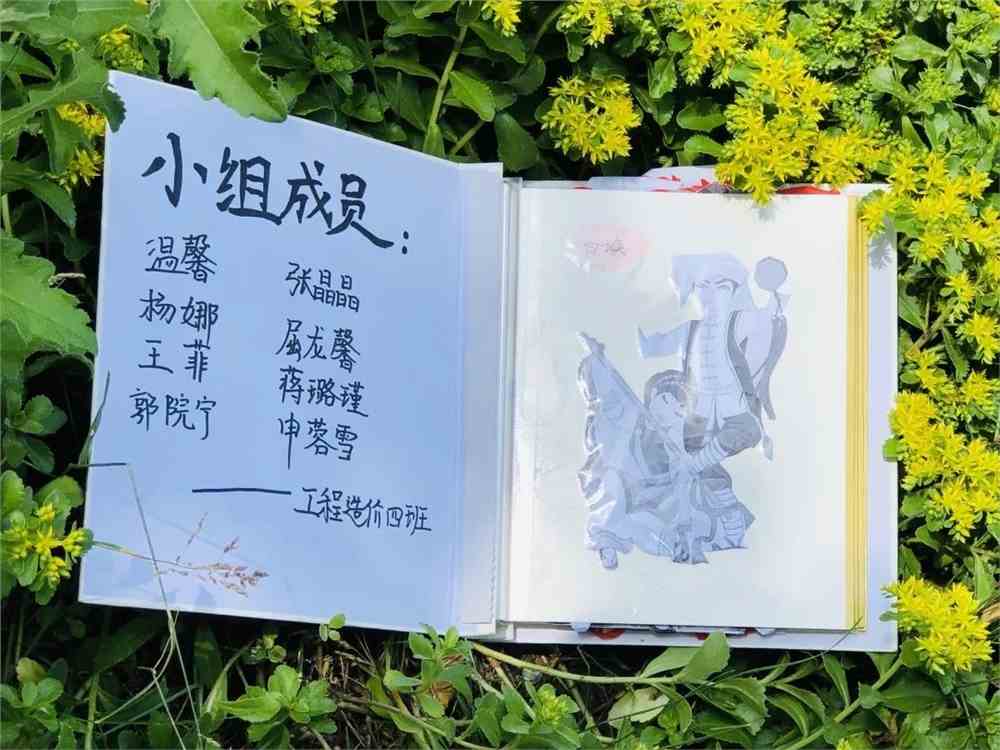 小组成员:
温馨
杨娜
王菲
郭院宁
张晶晶
屈龙馨
蒋璐瑾
申蓉雪
——工程造价四班